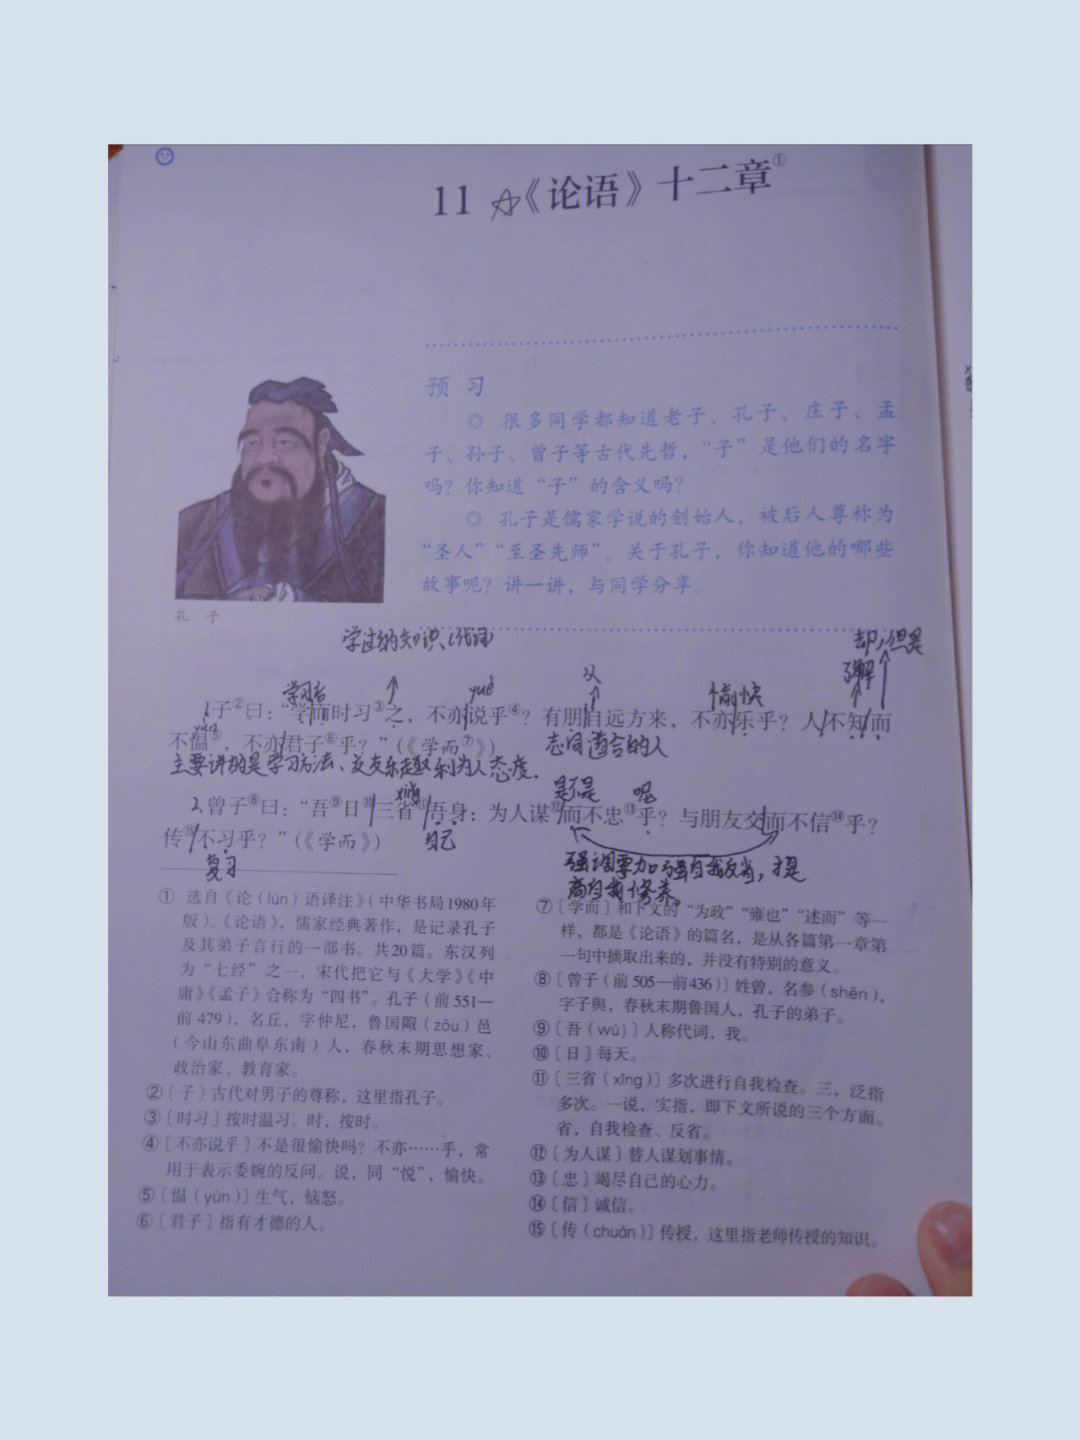 11 《论语》十二章①
预 习
◎ 很多同学都知道老子、孔子、庄子、孟
子、孙子、曾子等古代先哲，“子”是他们的名字
吗？你知道“子”的含义吗？
◎ 孔子是儒家学说的创始人，被后人尊称为
“圣人”“至圣先师”。关于孔子，你知道他的哪些
故事呢？讲一讲，与同学分享。
孔 子
学过的知识（代词）
却，但是
了解
学习后
yuè
从
愉快
1子②曰：“学而时习③之，不亦说乎④？有朋自远方来，不亦乐乎？人不知而
yùn
不愠⑤，不亦君子⑥乎？”（《学而⑦》）
志同道合的人
主要讲的是学习方法、交友乐趣和为人态度.
是不是
呢
2.曾子⑧曰：“吾⑨日⑩三省⑪吾身：为人谋⑫而不忠⑬乎？与朋友交而不信⑭乎？
传⑮不习乎？”（《学而》）
自己
复习
强调要加强自我反省，才是
高自我修养。
① 选自《论（lún）语译注》（中华书局1980年
版）。《论语》，儒家经典著作，是记录孔子
及其弟子言行的一部书。共20篇。东汉列
为“七经”之一，宋代把它与《大学》《中
庸》《孟子》合称为“四书”。孔子（前551—
前479），名丘，字仲尼，鲁国陬（zōu）邑
（今山东曲阜东南）人，春秋末期思想家、
政治家、教育家。
②〔子〕古代对男子的尊称，这里指孔子。
③〔时习〕按时温习。时，按时。
④〔不亦说乎〕不是很愉快吗？不亦……乎，常
用于表示委婉的反问。说，同“悦”，愉快。
⑤〔愠（yùn）〕生气，恼怒。
⑥〔君子〕指有才德的人。
⑦〔学而〕和下文的“为政”“雍也”“述而”等一
样，都是《论语》的篇名，是从各篇第一章第
一句中摘取出来的，并没有特别的意义。
⑧〔曾子（前505—前436）〕姓曾，名参（shēn），
字子舆，春秋末期鲁国人，孔子的弟子。
⑨〔吾（wú）〕人称代词，我。
⑩〔日〕每天。
⑪〔三省（xǐng）〕多次进行自我检查。三，泛指
多次。一说，实指，即下文所说的三个方面。
省，自我检查、反省。
⑫〔为人谋〕替人谋划事情。
⑬〔忠〕竭尽自己的心力。
⑭〔信〕诚信。
⑮〔传（chuán）〕传授，这里指老师传授的知识。